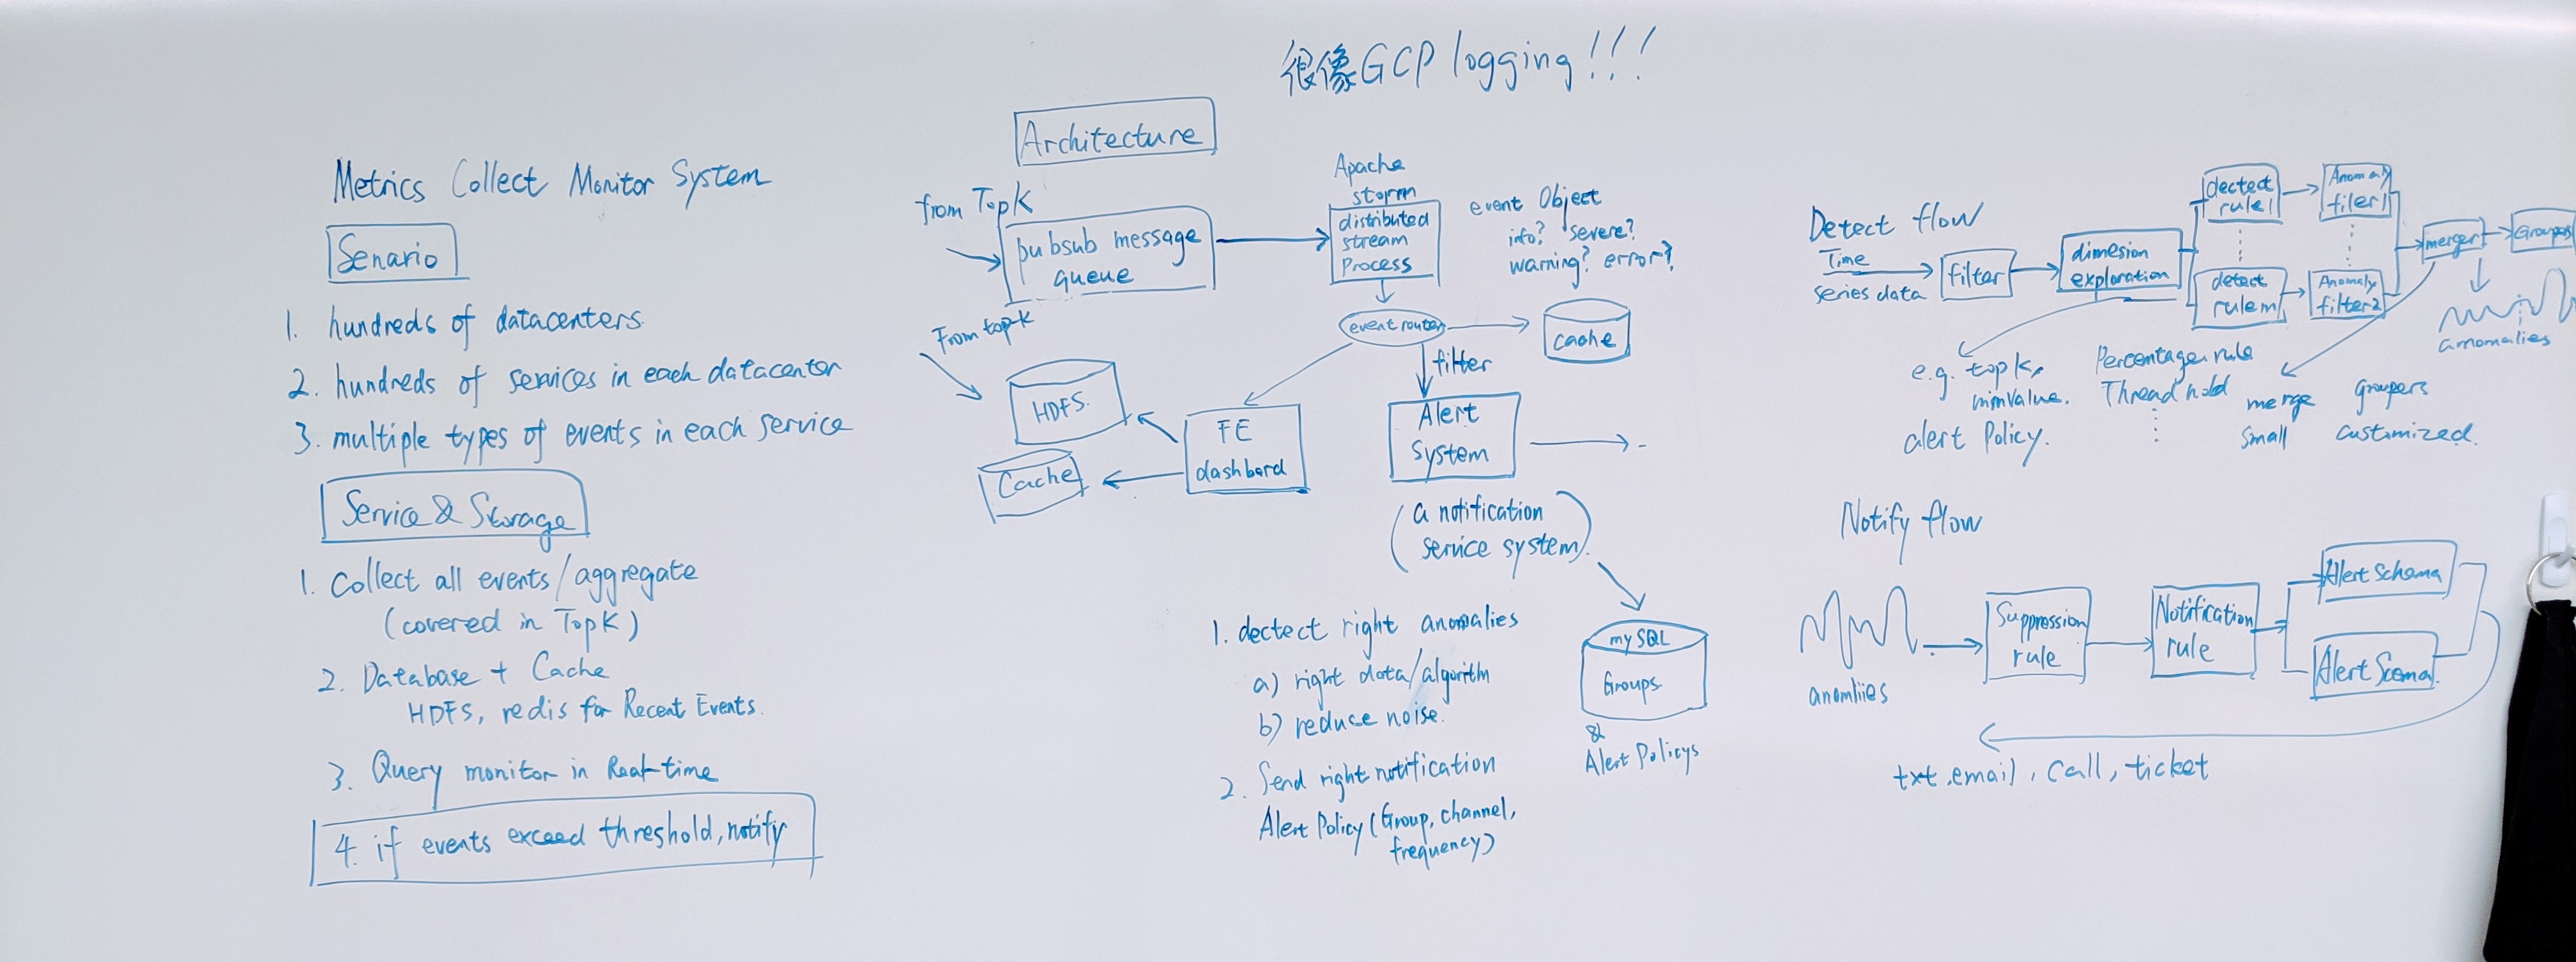 很像GCP logging!!!
Metrics Collect Monitor System
Senario
1. hundreds of datacenters
2. hundreds of services in each datacenter
3. multiple types of events in each service
Service & Storage
1. Collect all events/aggregate
(covered in TopK)
2. Database + Cache
HDFS, redis for Recent Events.
3. Query monitor in Real-time
4. if events exceed threshold, notify
Architecture
from TopK
pubsub message
queue
Apache
storm
distributed
stream
Process
event Object
info? severe?
warning? error?
event router
cache
filter
From top-k
HDFS.
Cache
FE
dashbord
Alert
System
(a notification
service system)
1. dectect right anomalies
a) right data/algorithm
b) reduce noise.
2. Send right notification
Alert Policy (Group, channel,
frequency)
mySQL
Groups.
&
Alert Policys
Detect flow
Time
series data
filter
dimesion
exploration
dectect
rule1
Anomaly
filer1
detect
rulem
Anomaly
filter2
merger
Groupers
anomalies
e.g. topk,
minValue.
alert Policy.
Percentage rule
Threadhold
merge
small
groupers
custimized.
Notify flow
anomliies
Suppression
rule
Notification
rule
Alert Schema
Alert Scema
txt, email, Call, ticket